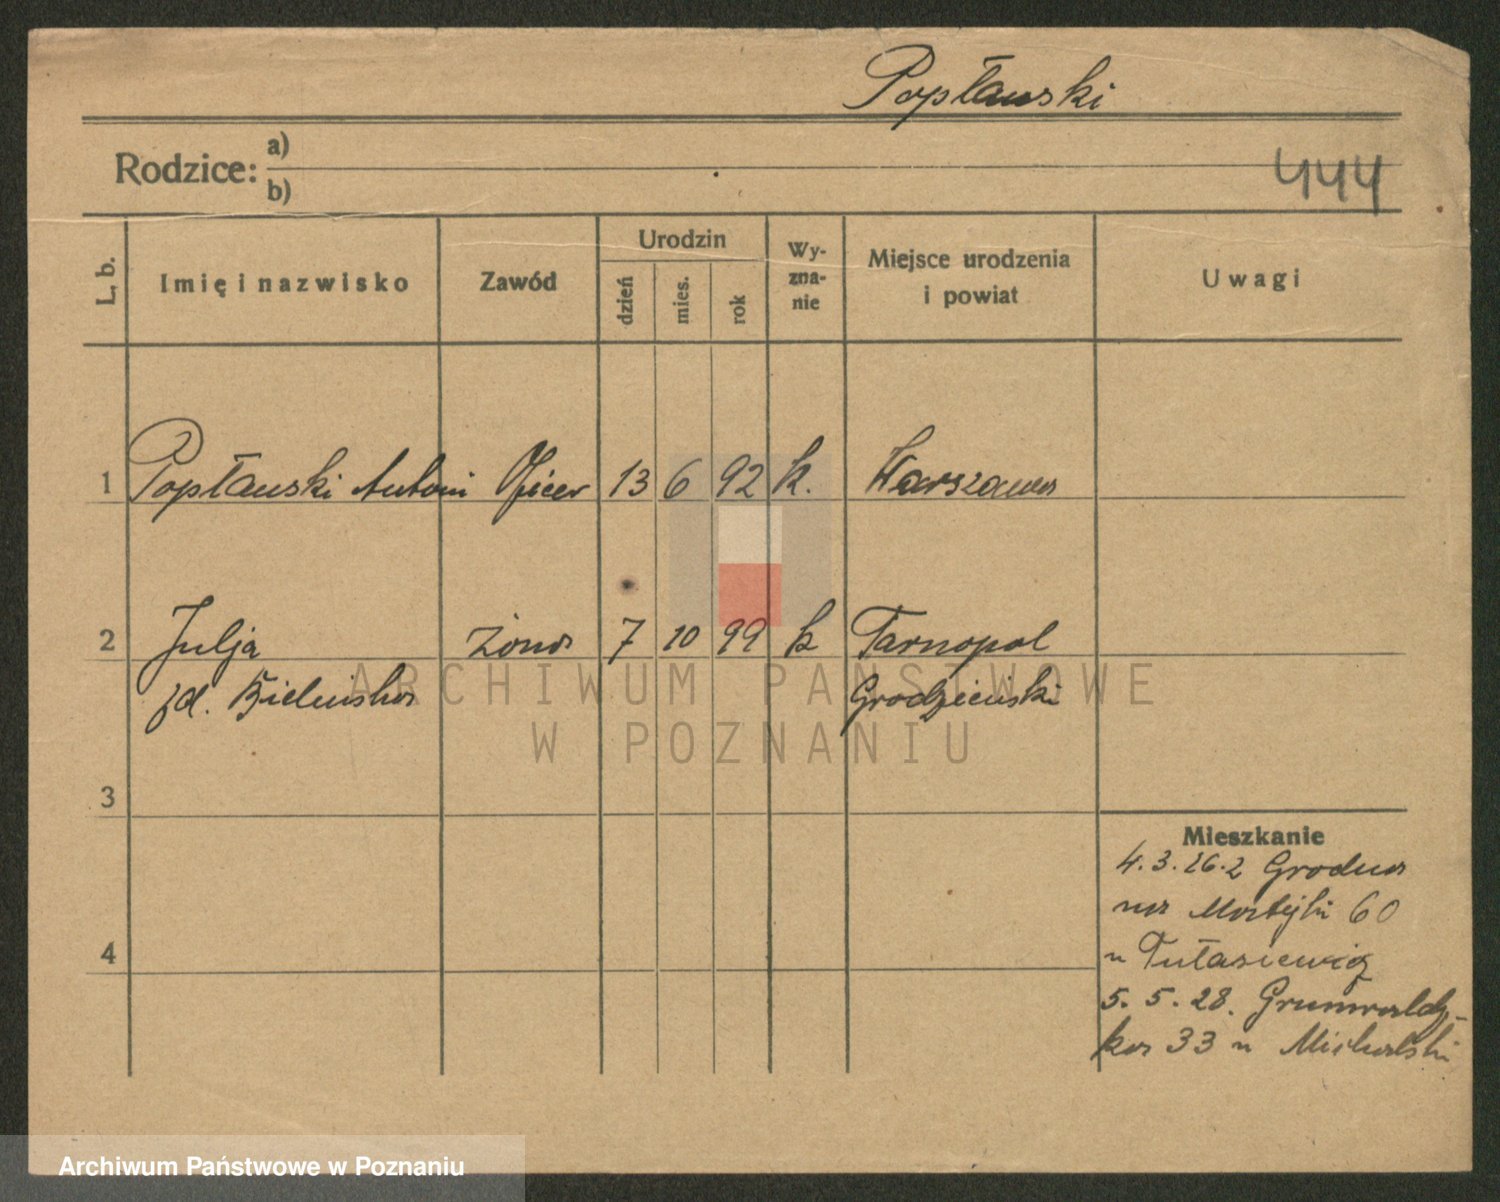 Popławski
Rodzice: a)
b)
444
L. b. Imię i nazwisko Zawód Urodzin dzień mies. rok Wy-zna-nie Miejsce urodzenia i powiat Uwagi
1 Popławski Antoni Oficer 13 6 92 k. Warszawa
2 Julja żona 7 10 99 k Tarnopol
zd. Bieleńska Grodzieński
ARCHIWUM PAŃSTWOWE
W POZNANIU
3
Mieszkanie
4. 3. 26. z Grodna
na Matejki 60
4
u Tułasiewicz
5. 5. 28. Grunwaldz-
ka 33 u Michalski
Archiwum Państwowe w Poznaniu